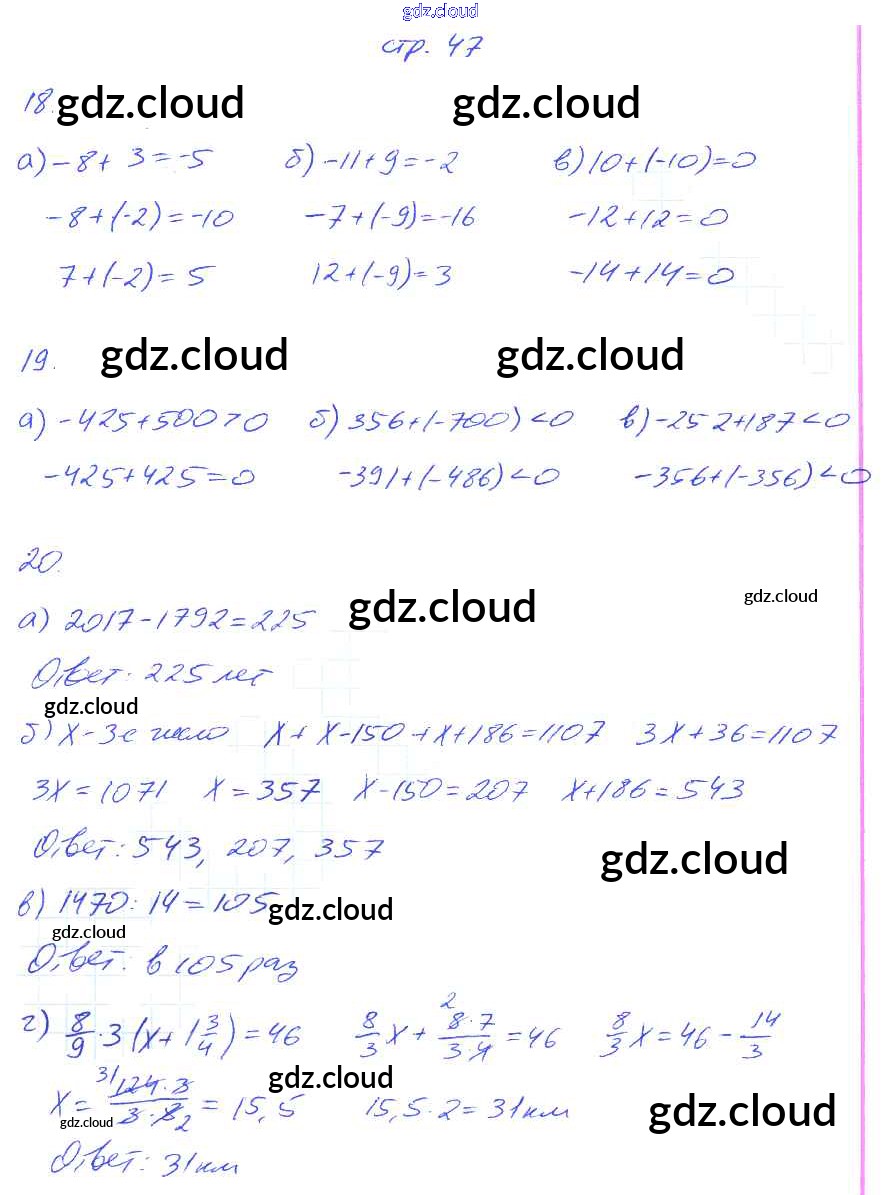 gdz.cloud
стр. 47
18. gdz.cloud gdz.cloud
а) -8+ 3=-5 б) -11+9=-2 в) 10+(-10)=0
-8+(-2)=-10 -7+(-9)=-16 -12+12=0
7+(-2)=5 12+(-9)=3 -14+14=0
19. gdz.cloud gdz.cloud
а) -425+500>0 б) 356+(-700)<0 в) -252+187<0
-425+425=0 -391+(-486)<0 -356+(-356)<0
20.
gdz.cloud
а) 2017-1792=225 gdz.cloud
Ответ: 225 лет
gdz.cloud
б) x-3е число x+x-150+x+186=1107 3x+36=1107
3x=1071 x=357 x-150=207 x+186=543
Ответ: 543, 207, 357
gdz.cloud
в) 1470:14=105 gdz.cloud
gdz.cloud
Ответ: в 105 раз
г) 8/9·3(x+1 3/4)=46 8/3x+ 2 8·7/3·4=46 8/3x=46-14/3
gdz.cloud
x= 31 124·3/3·8 2=15,5 15,5·2=31км
gdz.cloud gdz.cloud
Ответ: 31км